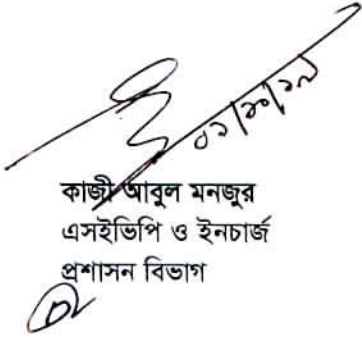 ০১/১০/১৭
কাজী আবুল মনজুর
এসইভিপি ও ইনচার্জ
প্রশাসন বিভাগ